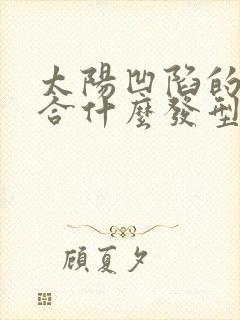 太陽凹陷的
合什麼發型
顧夏夕